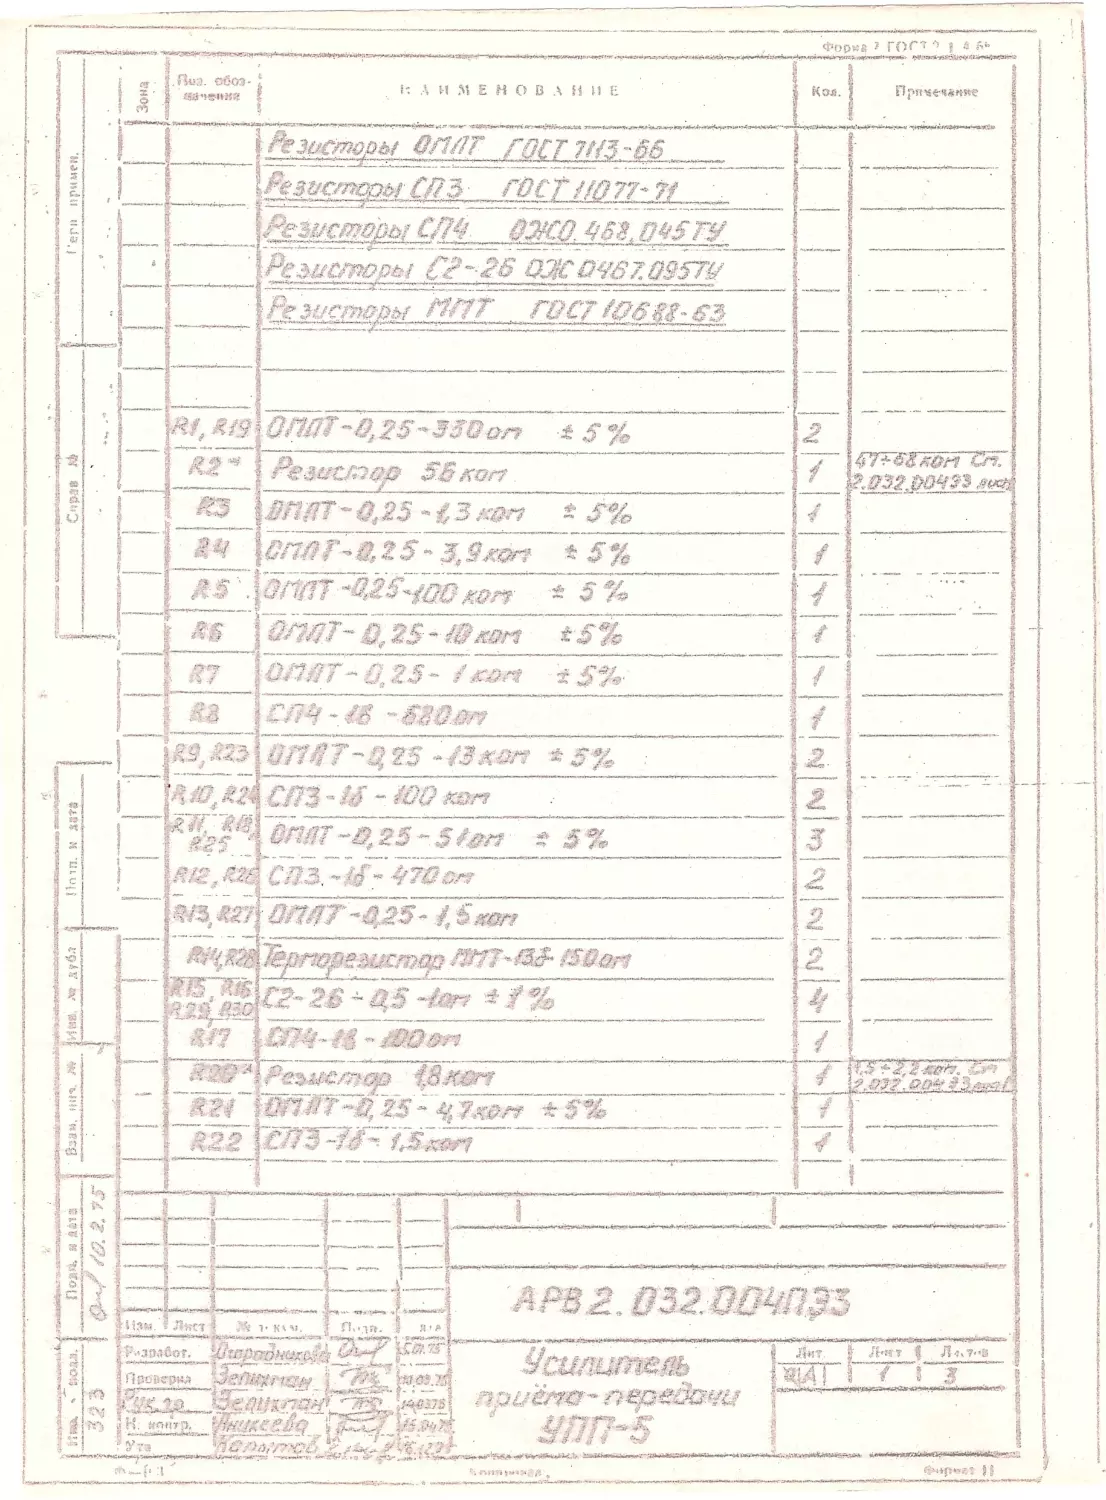 Форма 2 ГОСТ
Зона Поз. обозначение НАИМЕНОВАНИЕ Кол. Примечание
Резисторы ОМЛТ ГОСТ 7113-66
Резисторы СП3 ГОСТ 11077-71
Резисторы СП4 ОЖО 468.045ТУ
Резисторы С2-26 ОЖО467.095ТУ
Резисторы ММТ ГОСТ 10688-63
R1, R19 ОМЛТ-0,25-330 ом ± 5% 2
R2* Резистор 56 ком 1 47÷68 ком См.
2.032.004Э3 лист
R3 ОМЛТ-0,25-1,3 ком ± 5% 1
R4 ОМЛТ-0,25-3,9 ком ± 5% 1
R5 ОМЛТ-0,25-100 ком ± 5% 1
R6 ОМЛТ-0,25-10 ком ± 5% 1
R7 ОМЛТ-0,25-1 ком ± 5% 1
R8 СП4-1б-680 ом 1
R9, R23 ОМЛТ-0,25-13 ком ± 5% 2
R10, R24 СП3-1б-100 ком 2
R11, R18,
R25 ОМЛТ-0,25-51 ом ± 5% 3
R12, R26 СП3-1б-470 ом 2
R13, R27 ОМЛТ-0,25-1,5 ком 2
R14, R28 Терморезистор ММТ-13б-150 ом 2
R15, R16
R29, R30 С2-26-0,5-1 ом ± 1% 4
R17 СП4-1б-100 ом 1
R20* Резистор 1,8 ком 1 1,5÷2,2 ком. См
2.032.004Э3 лист
R21 ОМЛТ-0,25-4,7 ком ± 5% 1
R22 СП3-1б-1,5 ком 1
Перв примен.
Справ №
Подп. и дата
Инв. № дубл
Взам. инв. №
Подп. и дата 10.2.75
Инв. № подл. 323
АРВ2.032.004ПЭ3
Изм. Лист № докум. Подп. Дата
Разработ. Огородникова
Проверил Зелихман
Рук. гр. Зелихман
Н. контр. Аникеева
Утв
Усилитель
приёма-передачи
УПП-5
Лит. Лист Листов
А 1 3
Копировал Формат 11